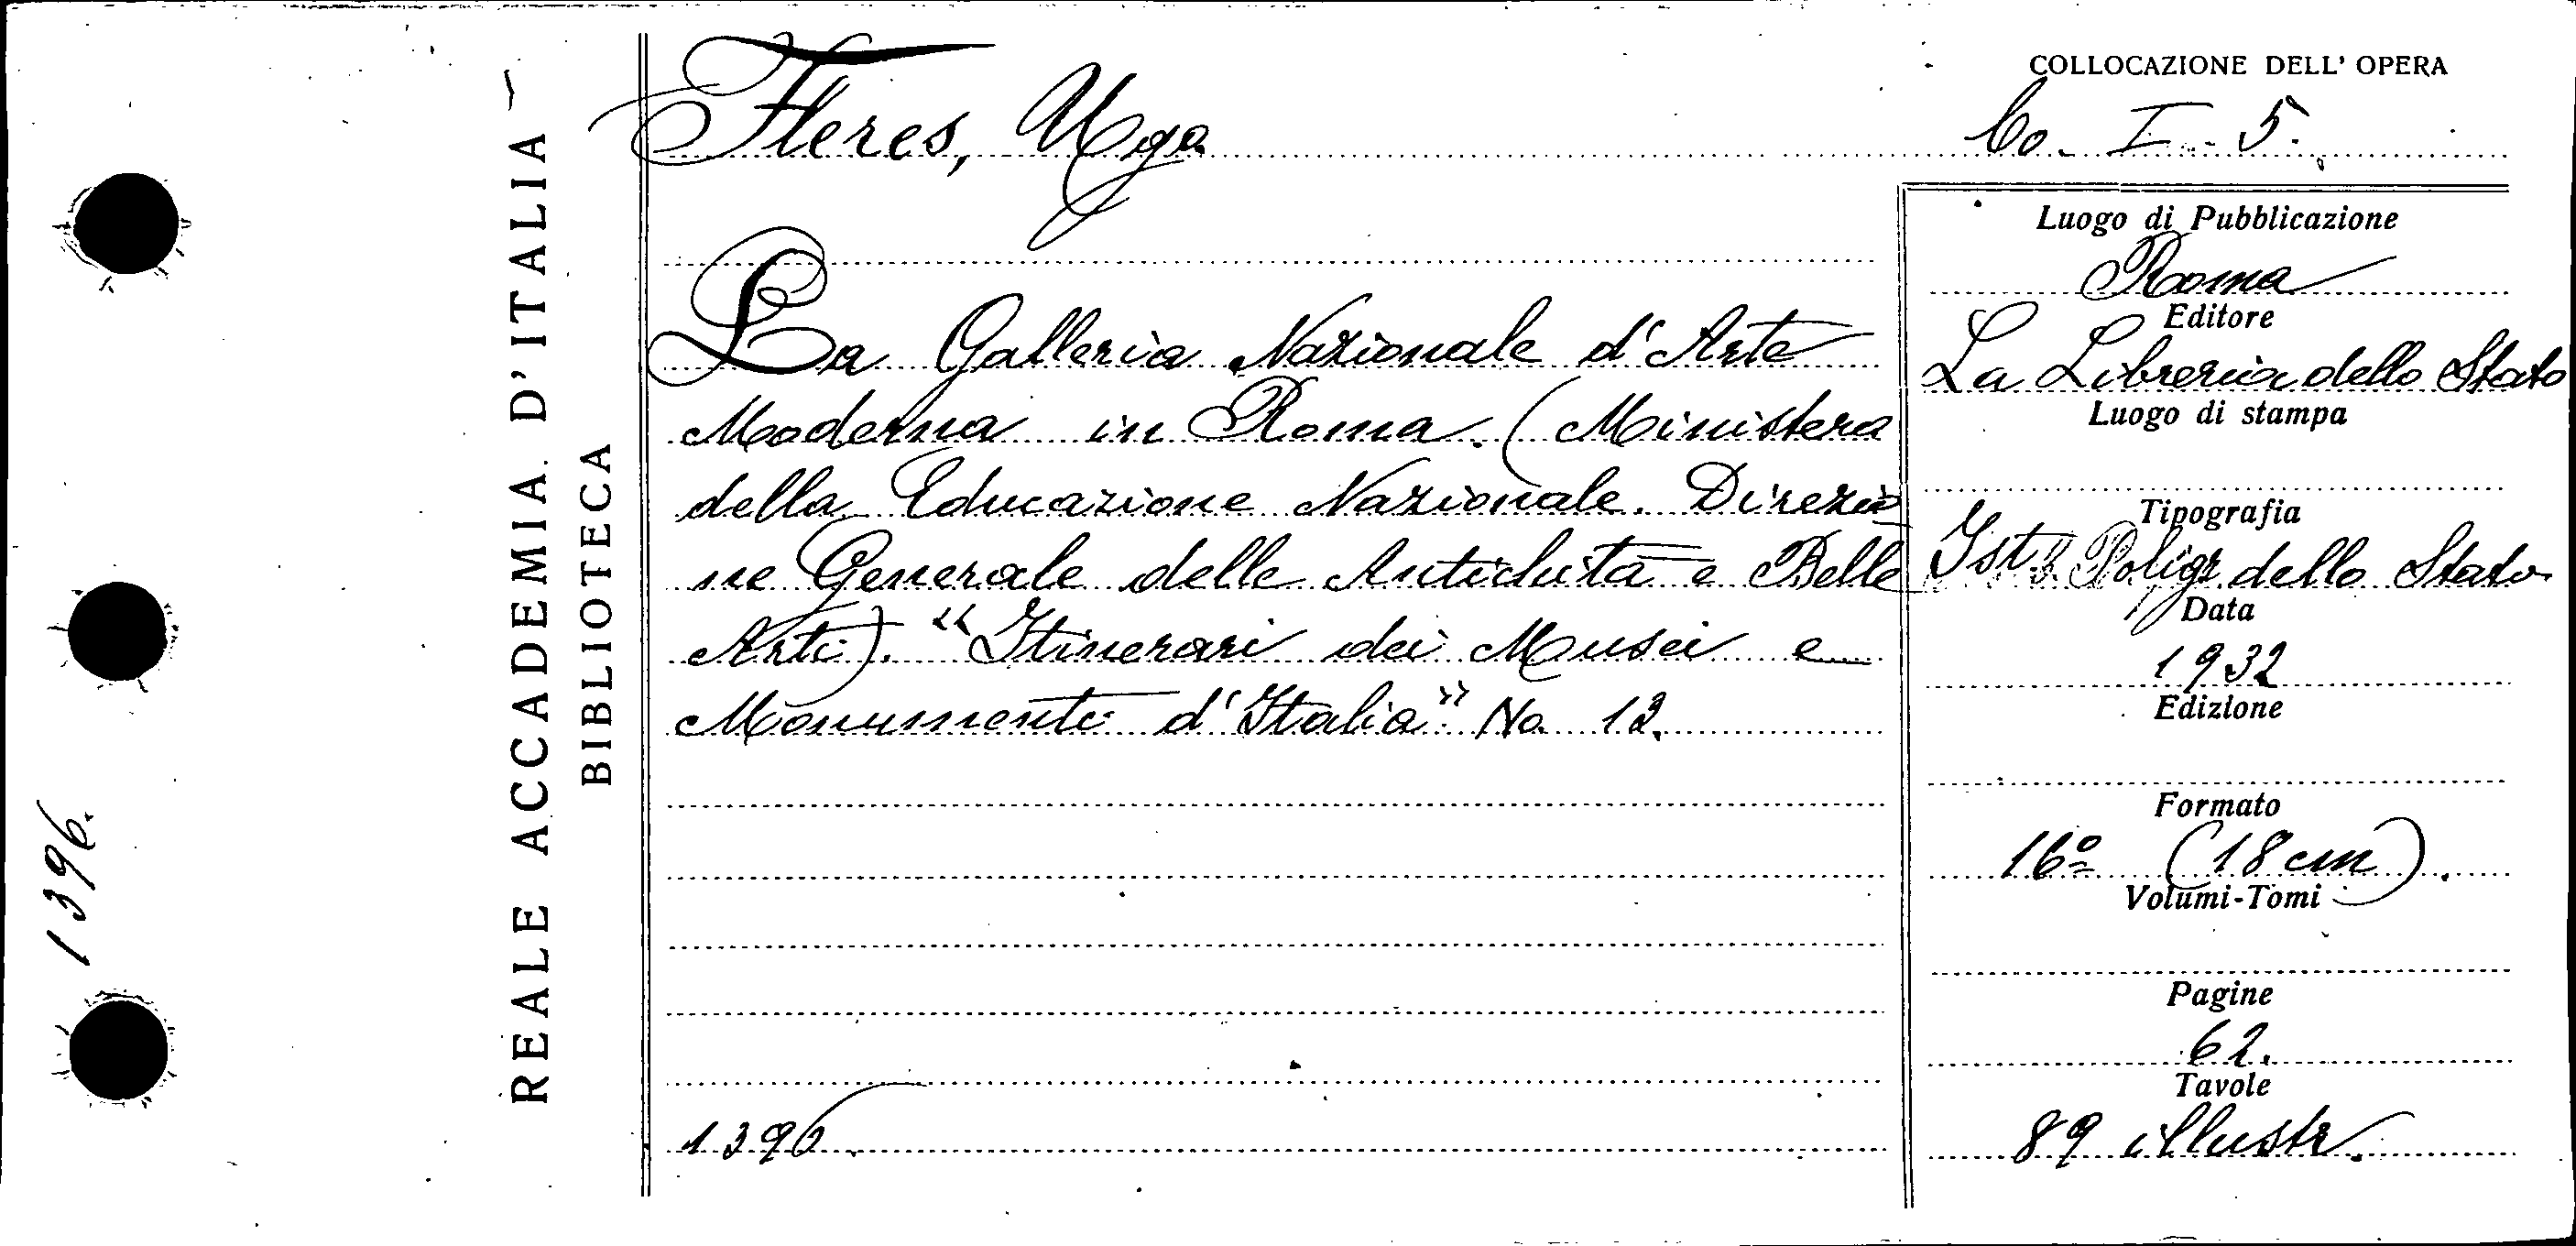 REALE ACCADEMIA D'ITALIA
BIBLIOTECA
1396.
Fleres, Ugo
La Galleria Nazionale d'Arte
Moderna in Roma. (Ministero
della Educazione Nazionale. Direzio
ne Generale delle Antichità e Belle
Arti). "Itinerari dei Musei e
Monumenti d'Italia" No. 12.
1396
COLLOCAZIONE DELL' OPERA
Co. I. 5.
Luogo di Pubblicazione
Roma
Editore
La Libreria dello Stato
Luogo di stampa
Tipografia
Ist. Poligr dello Stato
Data
1932
Edizione
Formato
16º (18 cm).
Volumi-Tomi
Pagine
62.
Tavole
89 illustr.